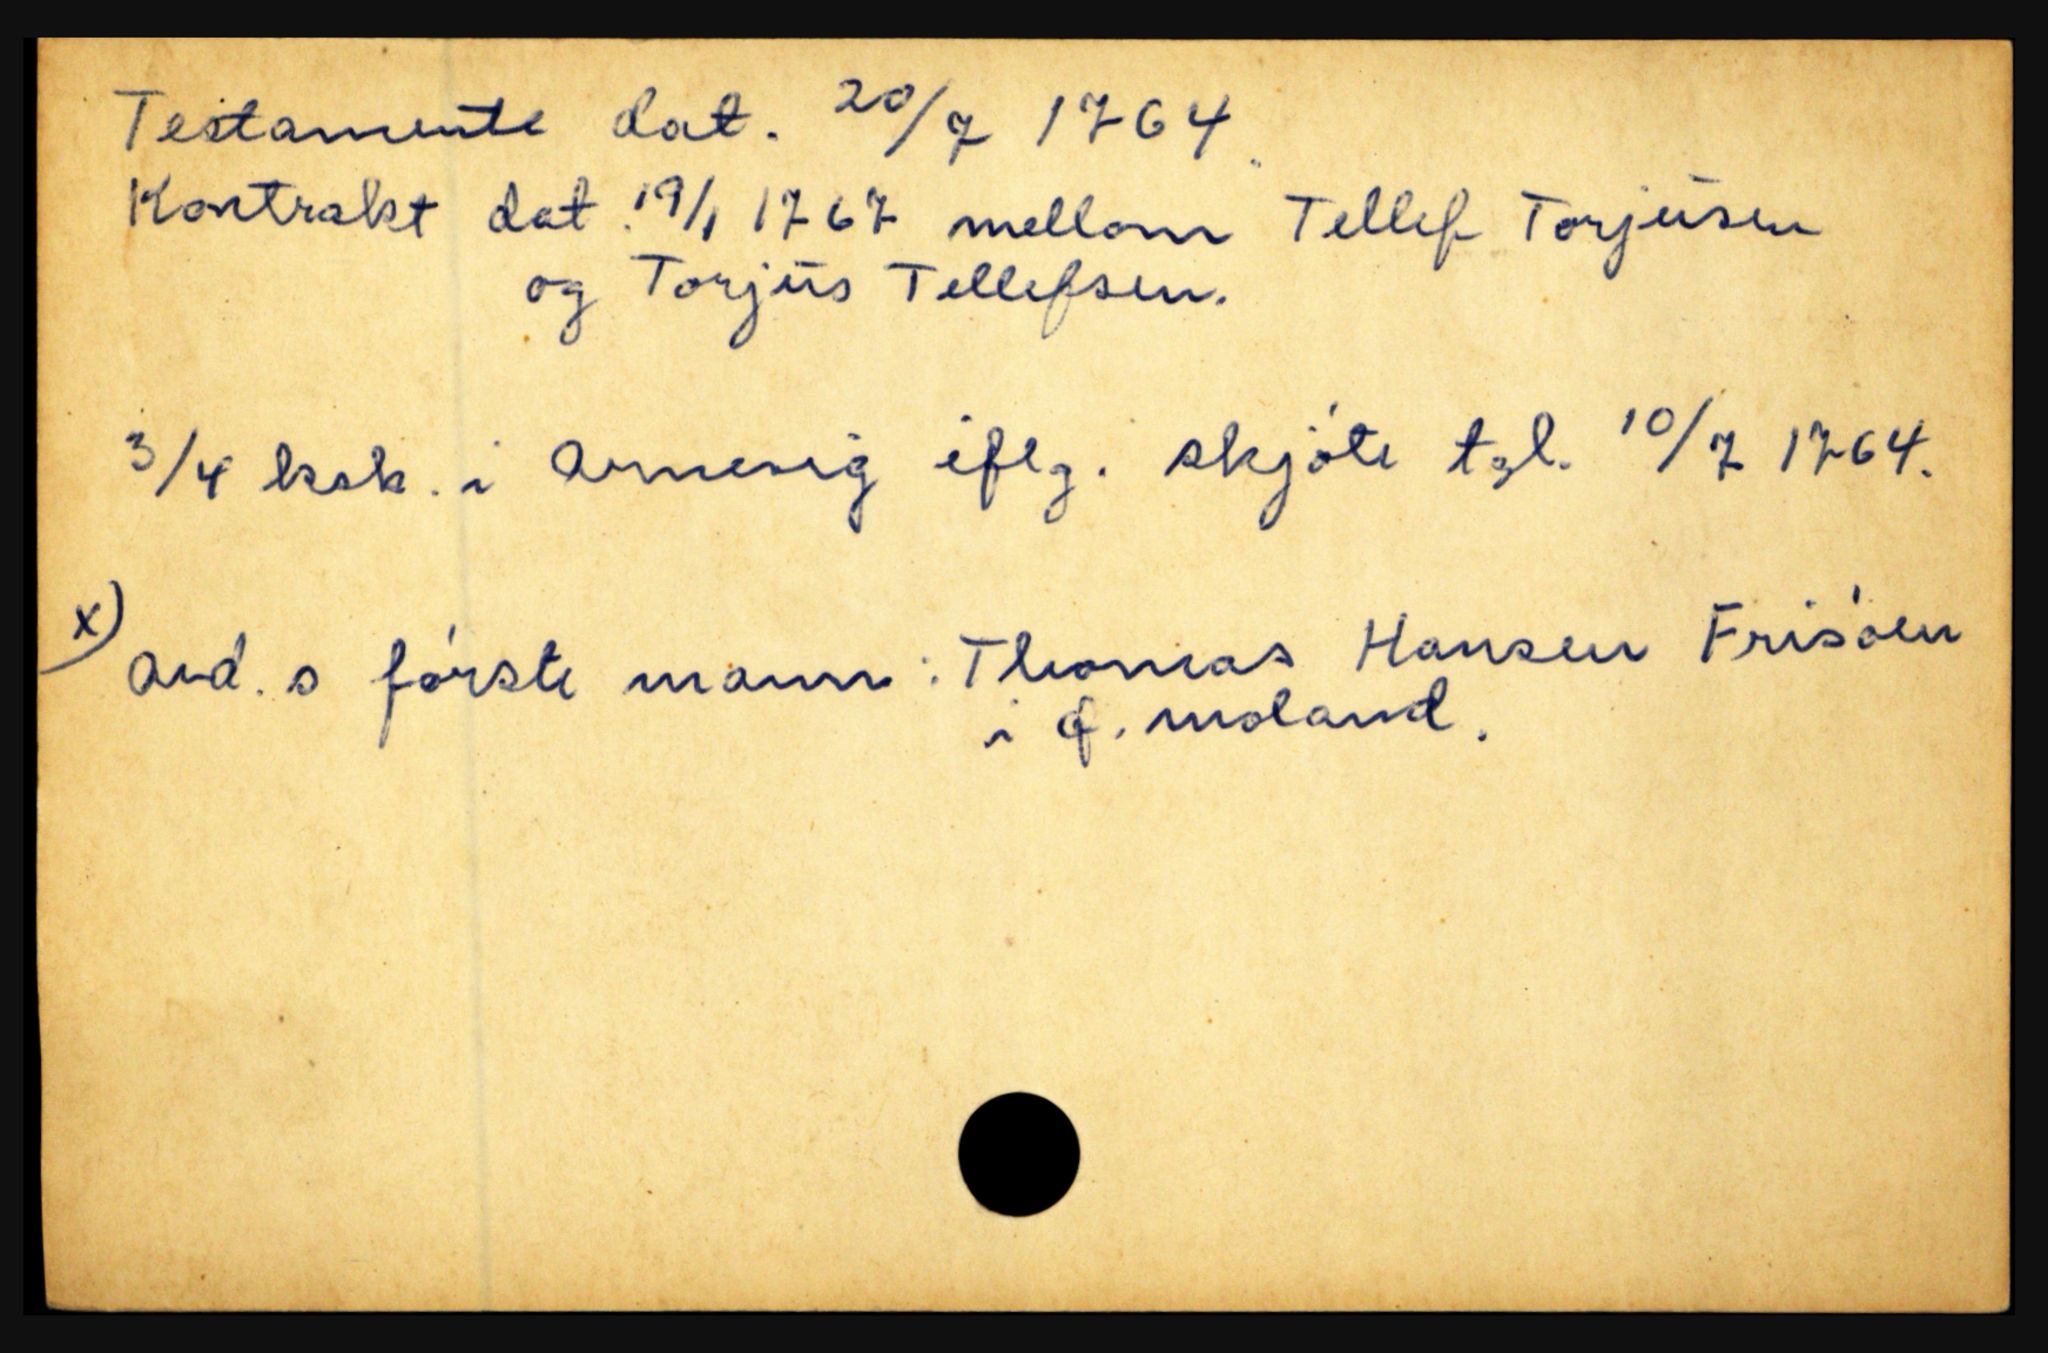 Testamente dat. 20/7 1764.
Kontrakt dat. 19/1 1767 mellom Tellef Torjusen
og Torjus Tellefsen.
3/4 ksk. i Arnevig iflg. skjóte tgl. 10/7 1764.
x) avd. s fórste mann: Thomas Hansen Frisóen
i Ø. Moland.